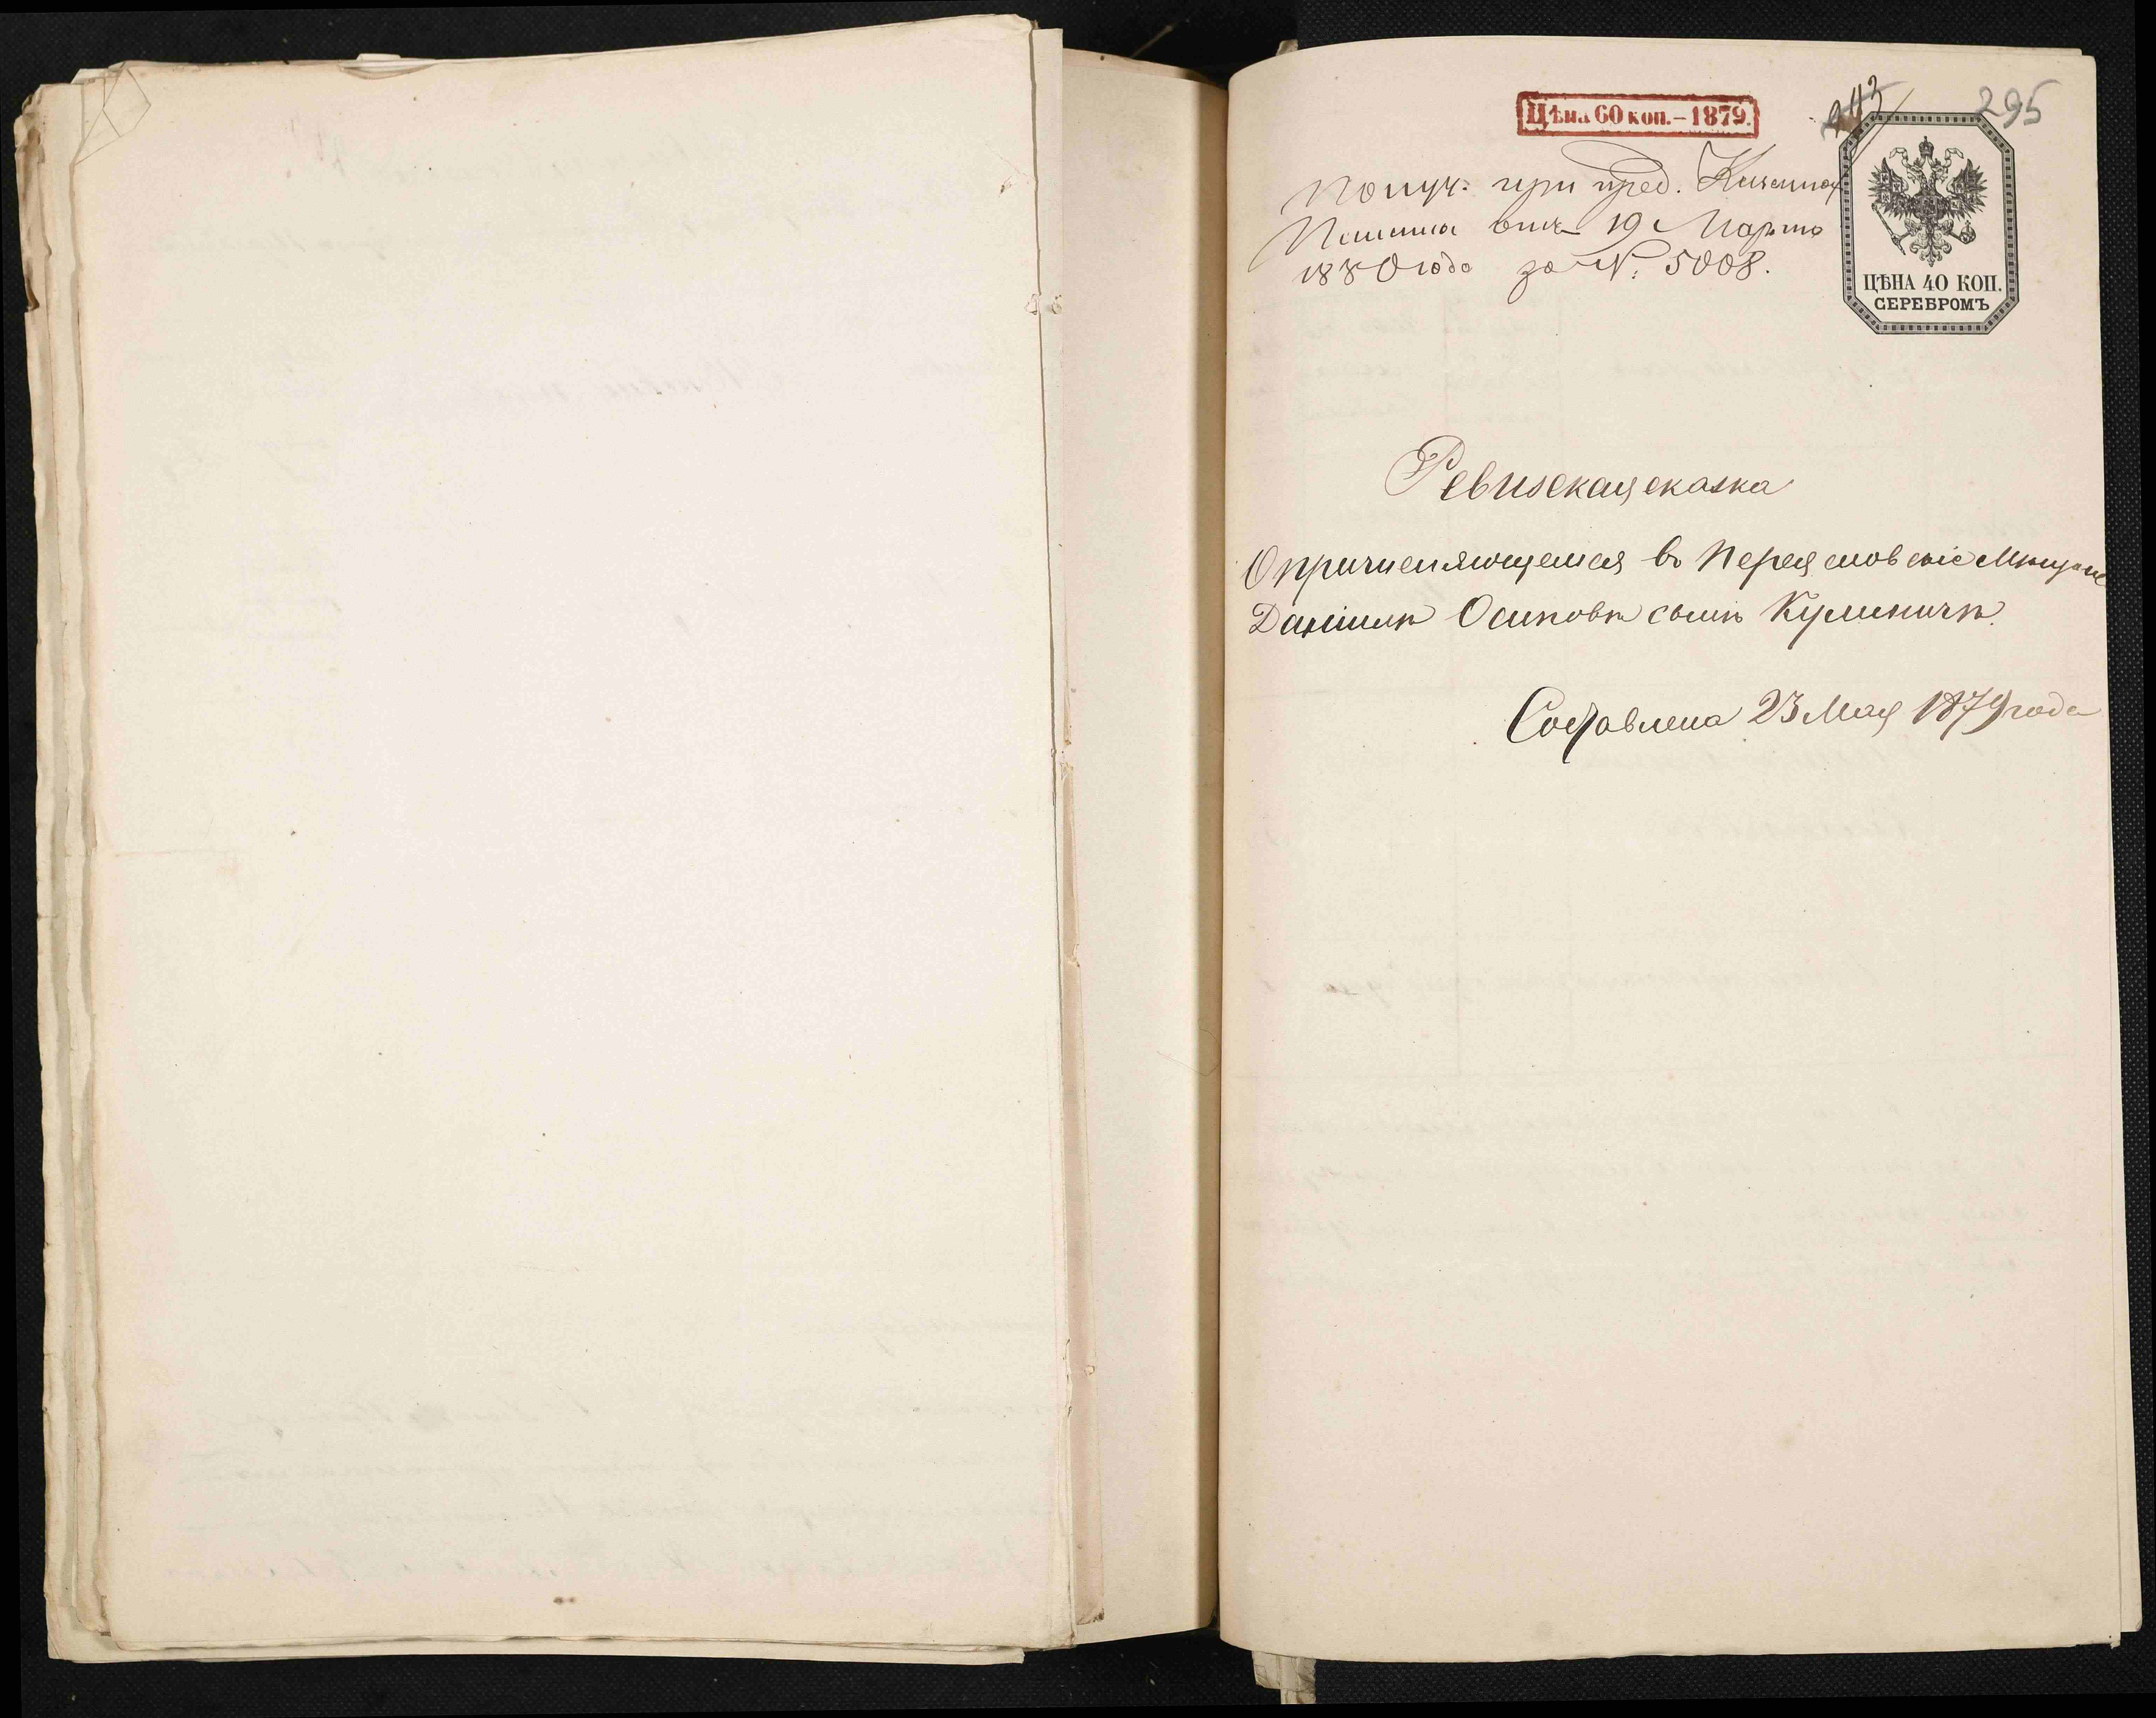 Цѣна 60 коп.–1879.
295
Получ: при пред. Казенной
отъ 19 Марта
1880 года за №: 5008.
ЦѢНА 40 КОП.
СЕРЕБРОМЪ
Ревизская сказка
О причисляющемся въ Переяславскіе Мѣщане
Даніилѣ Осиповѣ сынѣ
Составлена 23 Мая 1879 года